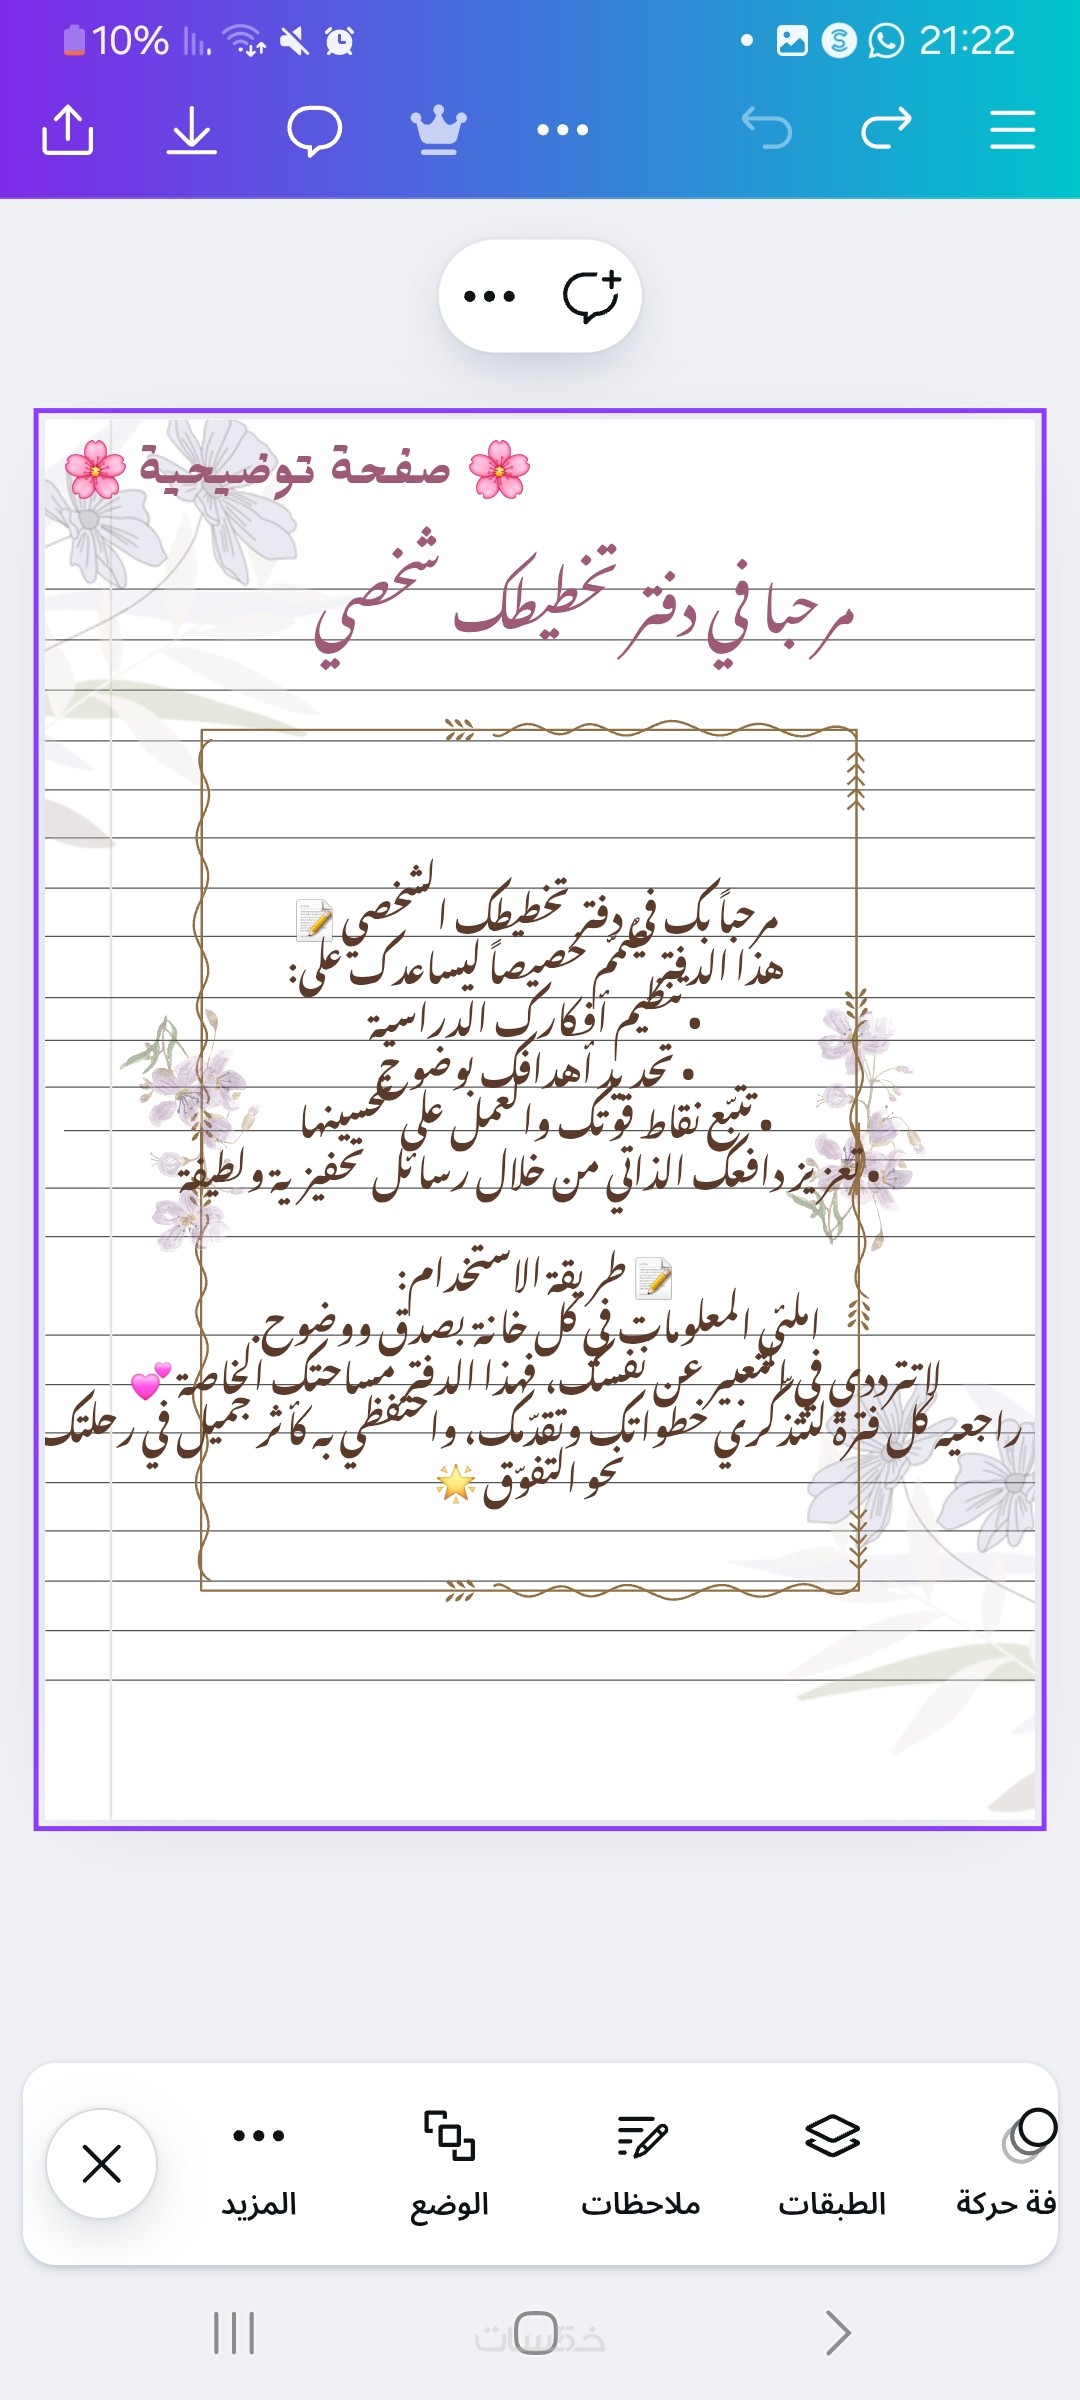 10%
21:22
🌸 صفحة توضيحية 🌸
مرحبا في دفتر تخطيطك شخصي
مرحباً بك في دفتر تخطيطك الشخصي 📝
هذا الدفتر صُمّم خصيصاً ليساعدك على:
• تنظيم أفكارك الدراسية
• تحديد أهدافك بوضوح
• تتبّع نقاط قوتك والعمل على تحسينها
• تعزيز دافعك الذاتي من خلال رسائل تحفيزية ولطيفة
📝 طريقة الاستخدام:
املئي المعلومات في كل خانة بصدق ووضوح.
لا تترددي في التعبير عن نفسك، فهذا الدفتر مساحتك الخاصة 💕
راجعيه كل فترة لتتذكّري خطواتك وتقدّمك، واحتفظي به كأثر جميل في رحلتك
نحو التفوّق 🌟
فة حركة
الطبقات
ملاحظات
الوضع
المزيد
خمسات